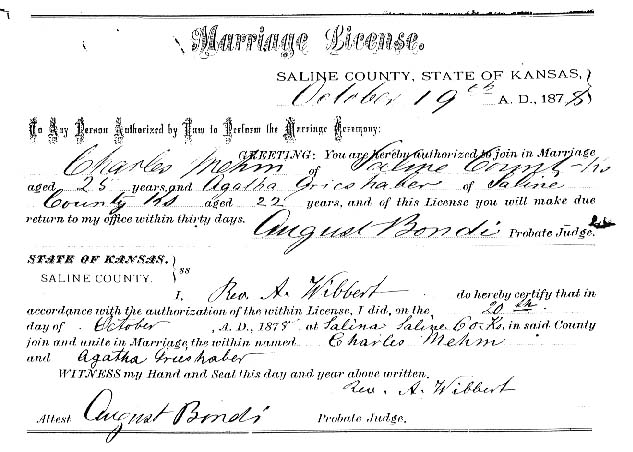 Marriage License.
SALINE COUNTY, STATE OF KANSAS,
October 19th A. D., 1878
To Any Person Authorized by Law to Perform the Marriage Ceremony:
GREETING: You are hereby authorized to join in Marriage
Charles Mehm of Saline County Ks
aged 25 years, and Agatha Grieshaber of Saline
County Ks aged 22 years, and of this License you will make due
return to my office within thirty days.
August Bondi Probate Judge.
STATE OF KANSAS. } ss
SALINE COUNTY.
I, Rev. A. Wibbert do hereby certify that in
accordance with the authorization of the within License, I did, on the 20th
day of October, A. D., 1878 at Salina Saline Co Ks, in said County
join and unite in Marriage the within named Charles Mehm
and Agatha Grieshaber
WITNESS my Hand and Seal this day and year above written.
Rev. A. Wibbert
Attest August Bondi Probate Judge.